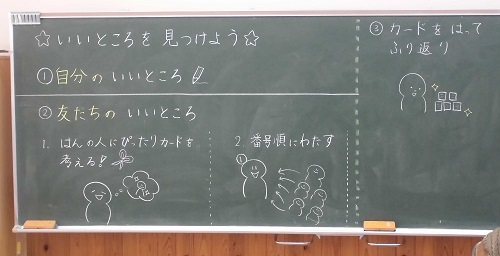 ☆いいところを見つけよう☆
①自分のいいところ
②友だちのいいところ
1. はんの人にぴったりカードを
考える!
2. 番号順にわたす
①
③カードをはって
ふり返り